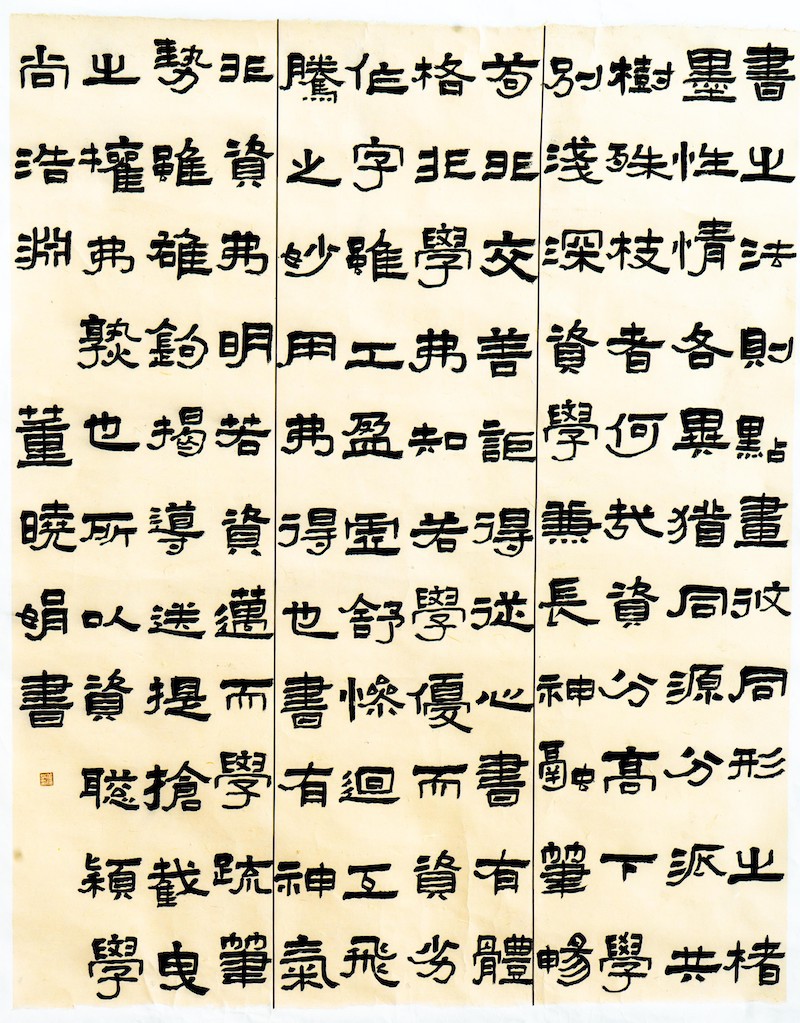 書之法則點畫攸同形之楮
墨性情各異猶同源分派共
樹殊枝者何哉資分高下學
別淺深資學兼長神融筆暢
苟非交善詎得從心書有體
格非學弗知若學優而資劣
作字雖工盈虛舒慘迴互飛
騰之妙用弗得也書有神氣
非資弗明若資邁而學疏筆
勢雖雄鉤揭導送提搶截曳
之權弗熟也所以資聰穎學
尚浩淵 董曉娟書